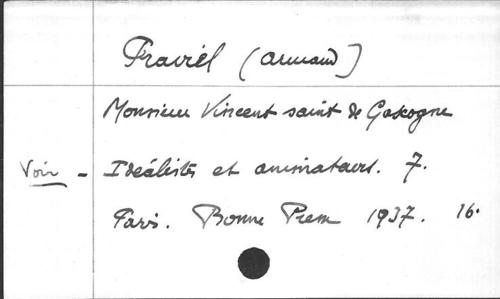 Praviel (Armand)
Monsieur Vincent saint de Gascogne
Voir - Idéalistes et animateurs. 7.
Paris. Bonne Presse 1937. 16.